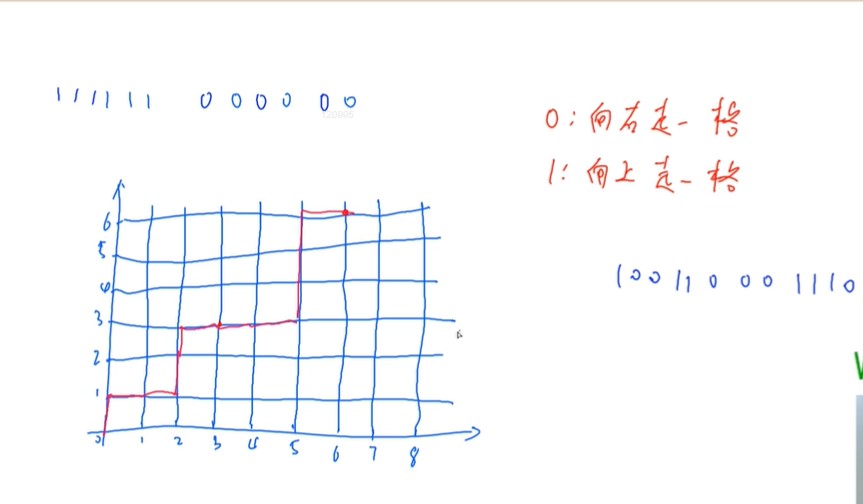 111111 000000
120905
0：向右走一格
1：向上走一格
100110001110
6
5
4
3
2
1
0 1 2 3 4 5 6 7 8